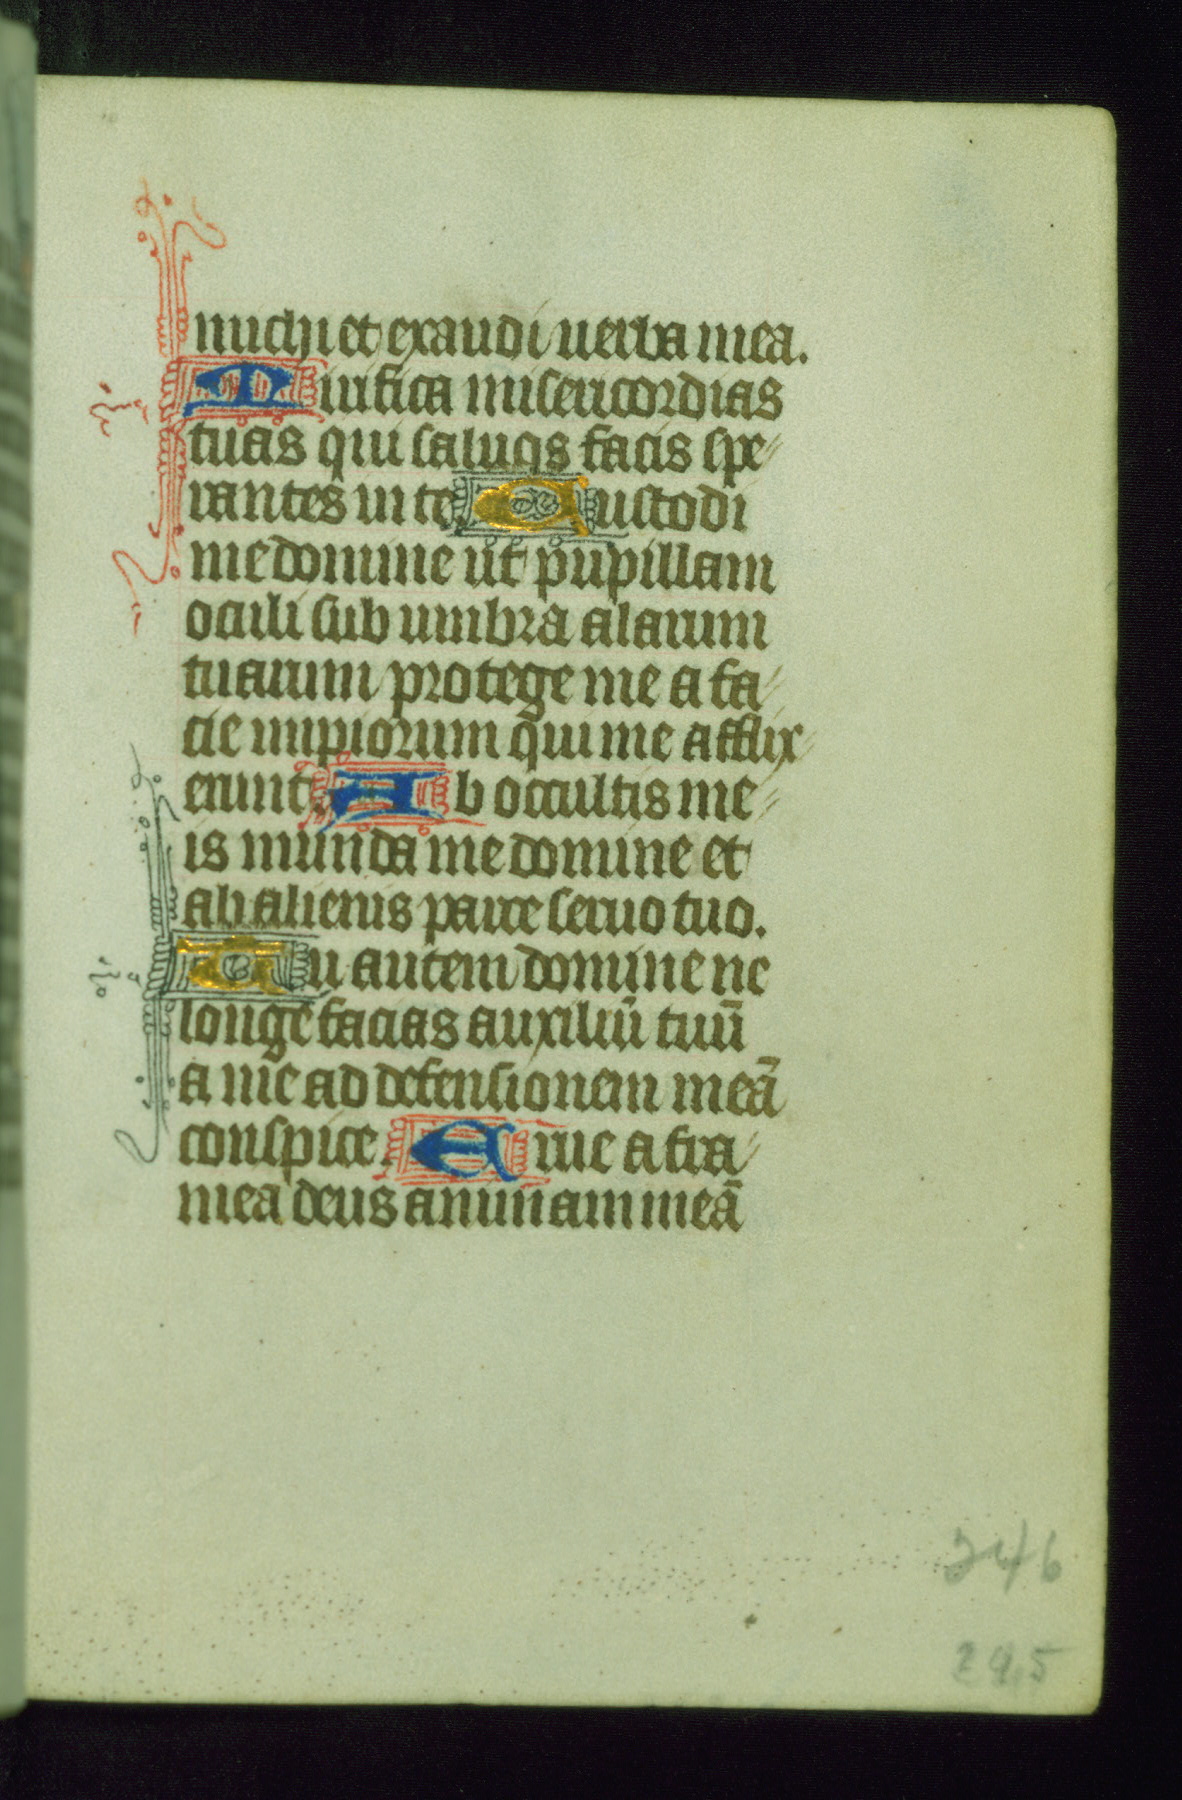 michi et exaudi uerba mea.
Mirifica misericordias
tuas qui saluos facis spe
rantes in te. Custodi
me domine ut pupillam
oculi sub umbra alarum
tuarum protege me a fa
cie impiorum qui me afflix
erunt. Ab occultis me
is munda me domine et
ab alienis parce seruo tuo.
Tu autem domine ne
longe facias auxiliū tuū
a me ad defensionem meā
conspice. Erue a fra
mea deus animam meā
246
295